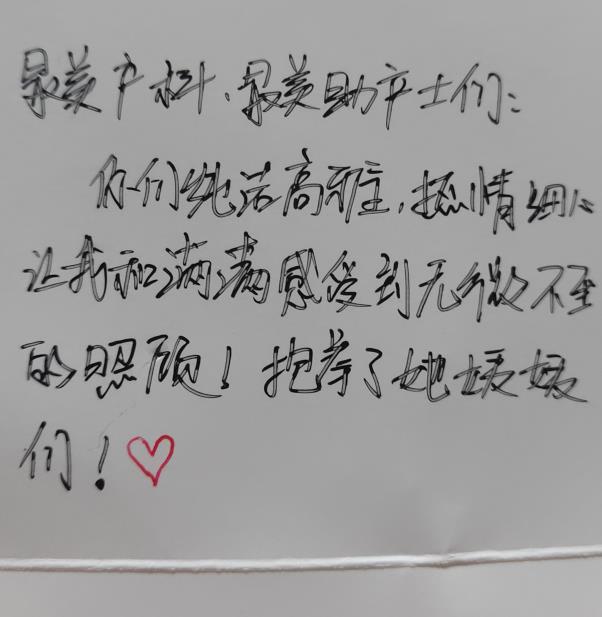 最美产科、最美助产士们:
你们纯洁高雅,热情细心
让我和满满感受到无微不至
的照顾!抱拳了她媛媛
们!